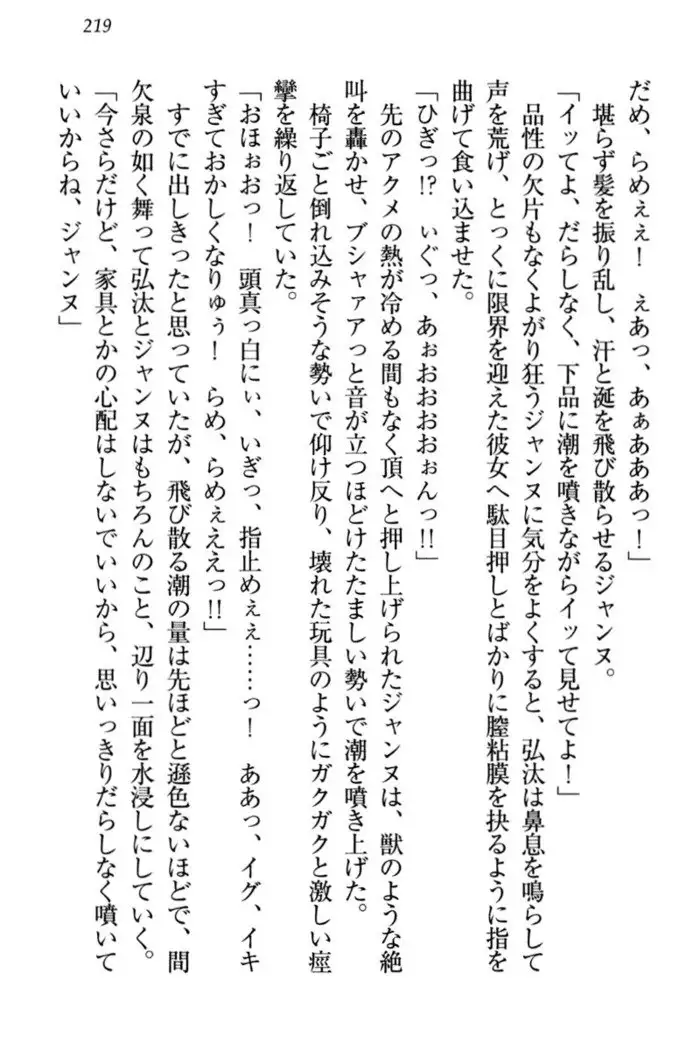 219
だめ、らめぇぇ！　ぇあっ、あぁあああっ！」
　堪らず髪を振り乱し、汗と涎を飛び散らせるジャンヌ。
「イッてよ、だらしなく、下品に潮を噴きながらイッて見せてよ！」
　品性の欠片もなくよがり狂うジャンヌに気分をよくすると、弘汰は鼻息を鳴らして
声を荒げ、とっくに限界を迎えた彼女へ駄目押しとばかりに膣粘膜を抉るように指を
曲げて食い込ませた。
「ひぎっ!?　ぃぐっ、あぉおおおおぉんっ!!」
　先のアクメの熱が冷める間もなく頂へと押し上げられたジャンヌは、獣のような絶
叫を轟かせ、ブシャァアっと音が立つほどけたたましい勢いで潮を噴き上げた。
　椅子ごと倒れ込みそうな勢いで仰け反り、壊れた玩具のようにガクガクと激しい痙
攣を繰り返していた。
「おほぉおっ！　頭真っ白にぃ、いぎっ、指止めぇぇ……っ！　ああっ、イグ、イキ
すぎておかしくなりゅぅ！　らめ、らめぇええっ!!」
　すでに出しきったと思っていたが、飛び散る潮の量は先ほどと遜色ないほどで、間
欠泉の如く舞って弘汰とジャンヌはもちろんのこと、辺り一面を水浸しにしていく。
「今さらだけど、家具とかの心配はしないでいいから、思いっきりだらしなく噴いて
いいからね、ジャンヌ」